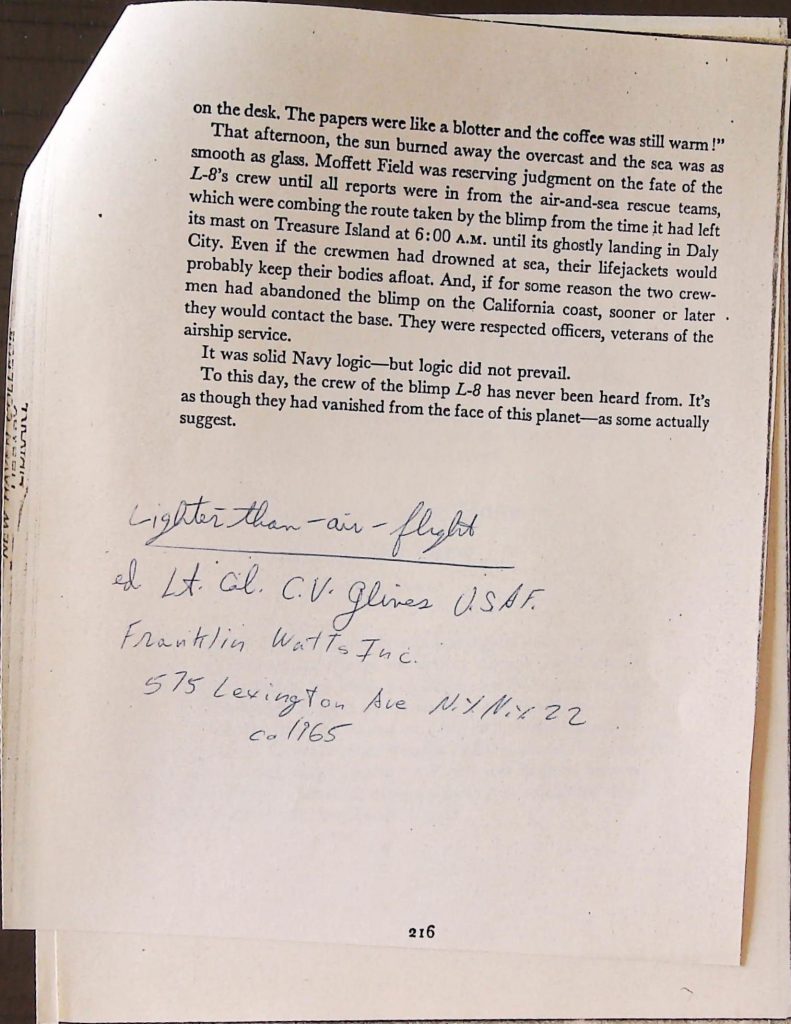 on the desk. The papers were like a blotter and the coffee was still warm!”
That afternoon, the sun burned away the overcast and the sea was as
smooth as glass. Moffett Field was reserving judgment on the fate of the
L-8’s crew until all reports were in from the air-and-sea rescue teams,
which were combing the route taken by the blimp from the time it had left
its mast on Treasure Island at 6:00 A.M. until its ghostly landing in Daly
City. Even if the crewmen had drowned at sea, their lifejackets would
probably keep their bodies afloat. And, if for some reason the two crew-
men had abandoned the blimp on the California coast, sooner or later
they would contact the base. They were respected officers, veterans of the
airship service.
It was solid Navy logic—but logic did not prevail.
To this day, the crew of the blimp L-8 has never been heard from. It’s
as though they had vanished from the face of this planet—as some actually
suggest.
Lighter-than-air-flight
ed Lt. Col. C.V. Glines U.S.A.F.
Franklin Watts Inc.
575 Lexington Ave N.Y. N.Y. 22
ca 1965
216